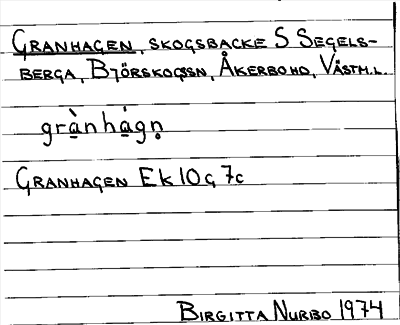 GRANHAGEN, SKOGSBACKE S SEGELS-
BERGA, BJÖRSKOGSSN, ÅKERBOHD, VÄSTM.L.
grà̱nha̱̍gn̥
GRANHAGEN Ek 10G 7c
BIRGITTA NURBO 1974